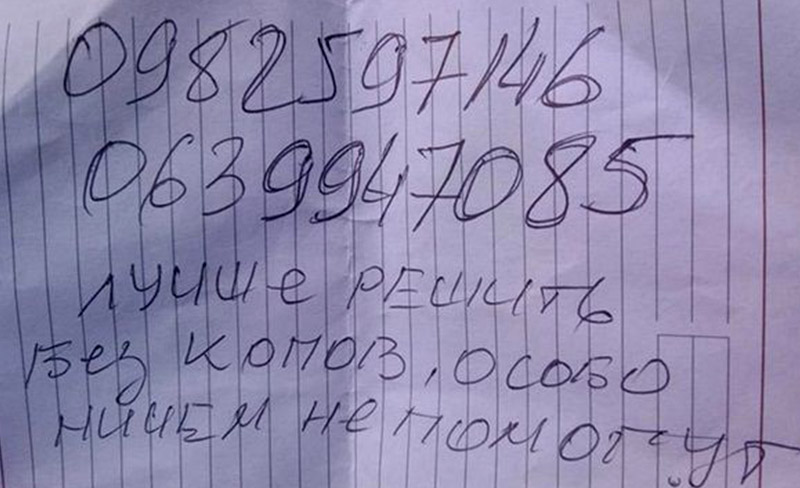 0982597146
0639947085
ЛУЧШе РЕШИТЬ
Без КОПОВ, ОСОБО
НИЧЕМ Не ПОМОГУТ